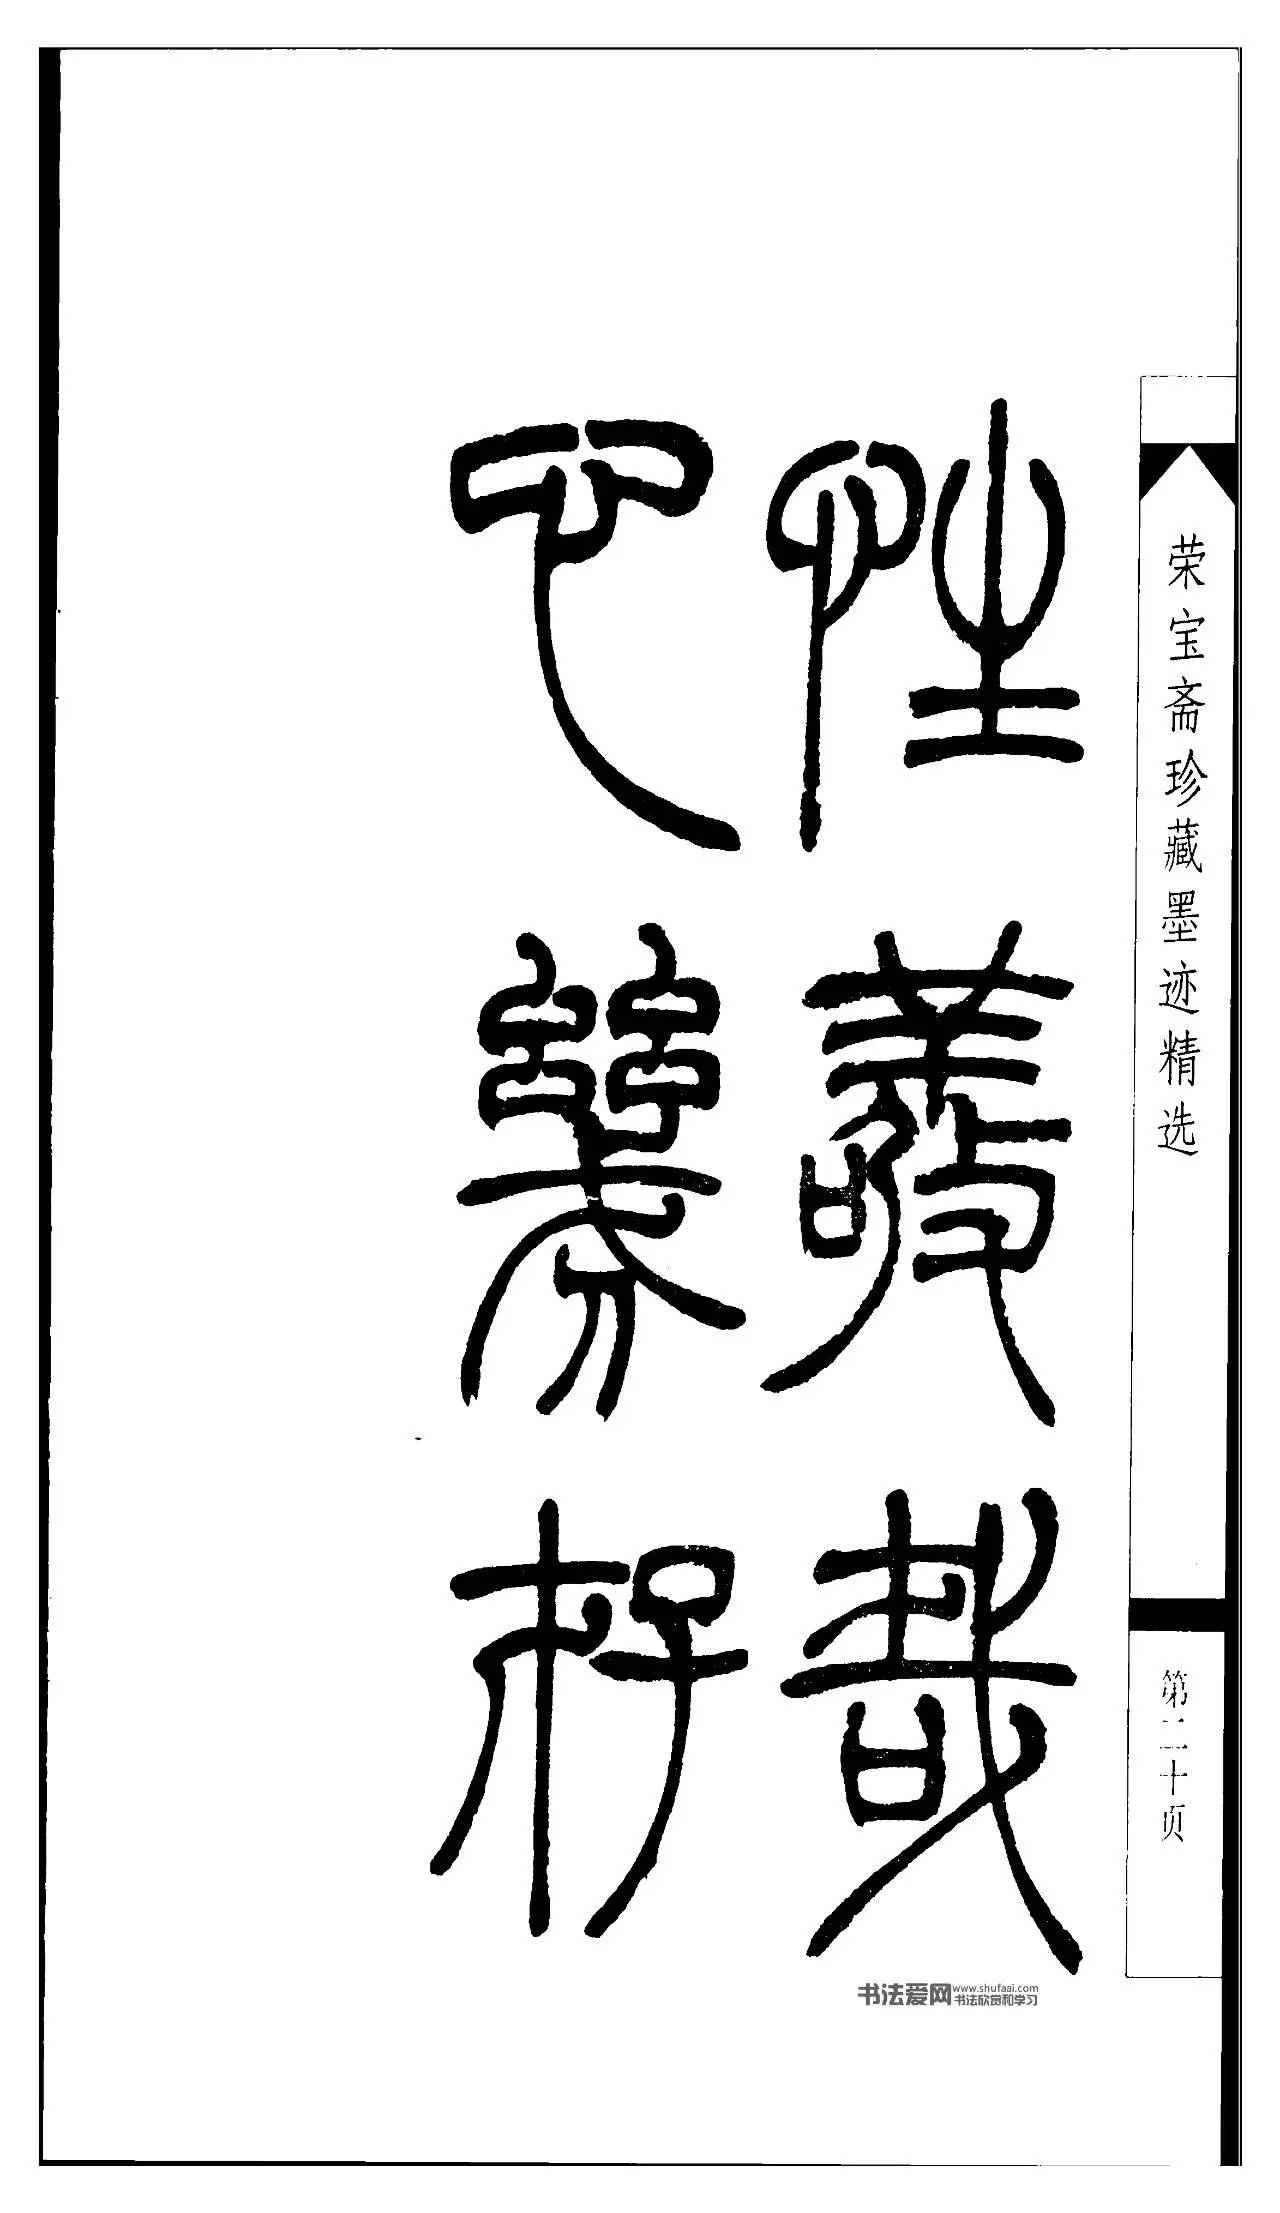 荣宝斋珍藏墨迹精选
第二十页
性敬哉
也幾存
书法爱网
www.shufaai.com
书法欣赏和学习